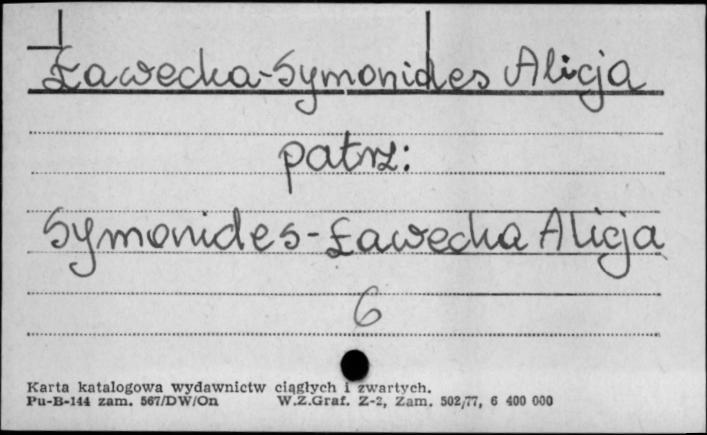 Ławecka-Symonides Alicja
patrz:
Symonides-Ławecka Alicja
6
Karta katalogowa wydawnictw ciągłych i zwartych.
Pu-B-144 zam. 567/DW/On W.Z.Graf. Z-2, Zam. 502/77, 6 400 000